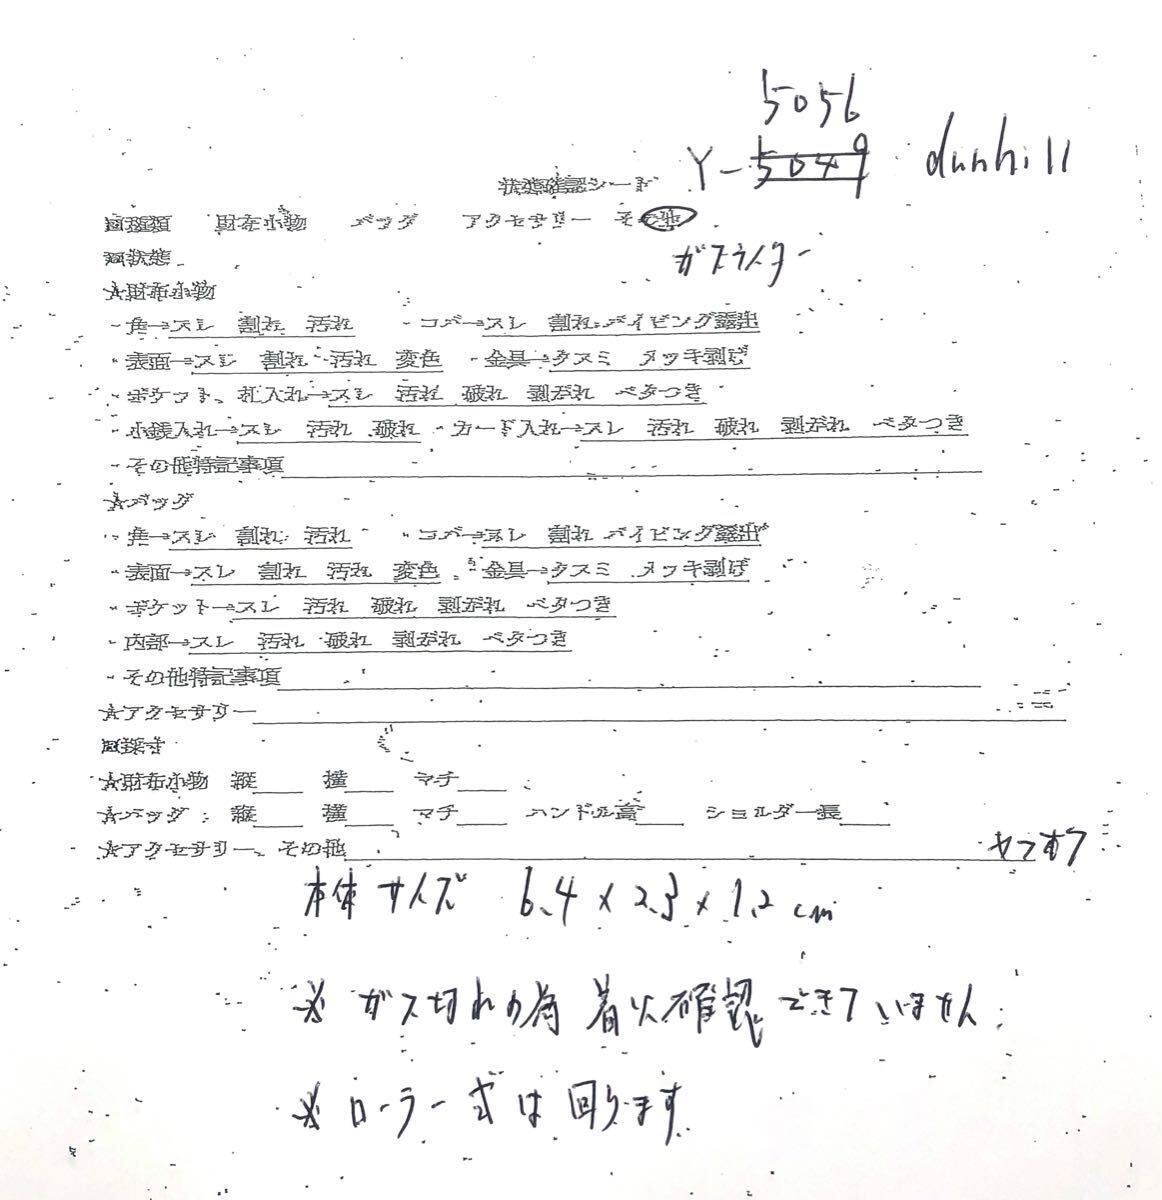 5056
Y-5049 dunhill
状態確認シート
■種類 財布小物 バッグ アクセサリー その他
ガスライター
■状態
★財布小物
・角→スレ 割れ 汚れ ・コバ→スレ 割れ パイピング露出
・表面→スレ 割れ 汚れ 変色 ・金具→クスミ メッキ剥げ
・ポケット、札入れ→スレ 汚れ 破れ 剥がれ ベタつき
・小銭入れ→スレ 汚れ 破れ ・カード入れ→スレ 汚れ 破れ 剥がれ ベタつき
・その他特記事項
★バッグ
・角→スレ 割れ 汚れ ・コバ→スレ 割れ パイピング露出
・表面→スレ 割れ 汚れ 変色 ・金具→クスミ メッキ剥げ
・ポケット→スレ 汚れ 破れ 剥がれ ベタつき
・内部→スレ 汚れ 破れ 剥がれ ベタつき
・その他特記事項
★アクセサリー
■採寸
★財布小物 縦 横 マチ
★バッグ 縦 横 マチ ハンドル高 ショルダー長
★アクセサリー、その他 ヤフオク
本体サイズ 6.4×2.3×1.2cm
※ガス切れの為着火確認できていません
※ローラー式は回ります